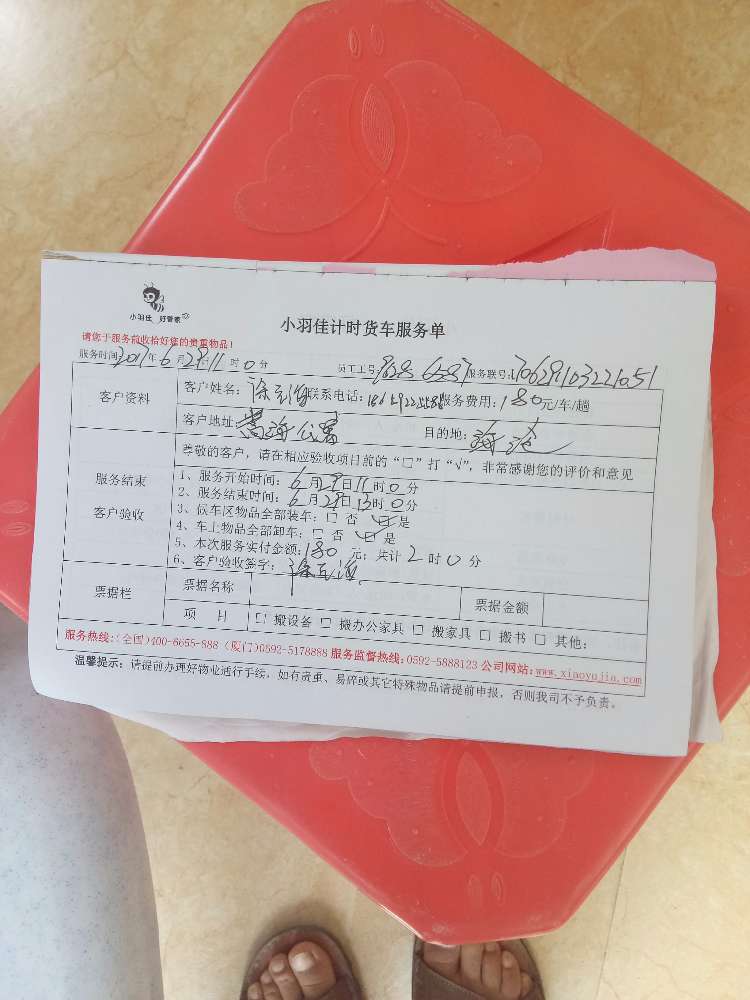 小羽佳 好管家
小羽佳计时货车服务单
请您于服务前收拾好您的贵重物品!
服务时间2017年6月29日11时0分 员工工号: 服务联号:170629103221051
客户资料
客户姓名:徐 海 联系电话: 服务费用:180元/车/趟
客户地址: 海公寓 目的地:海沧
服务结束
客户验收
尊敬的客户,请在相应验收项目前的“□”打“√”,非常感谢您的评价和意见
1、服务开始时间:6月29日11时0分
2、服务结束时间:6月29日13时0分
3、候车区物品全部装车:□ 否 ☑ 是
4、车上物品全部卸车:□ 否 ☑ 是
5、本次服务实付金额:180 元;共计 2 时 0 分
6、客户验收签字:徐 海
票据栏
票据名称 票据金额
项 目 □ 搬设备 □ 搬办公家具 □ 搬家具 □ 搬书 □ 其他:
服务热线:(全国)400-6655-888 (厦门)0592-5178888 服务监督热线:0592-5888123 公司网站:www.xiaoyujia.com
温馨提示:请提前办理好物业活行手续,如有贵重、易碎或其它特殊物品请提前申报,否则我司不予负责。